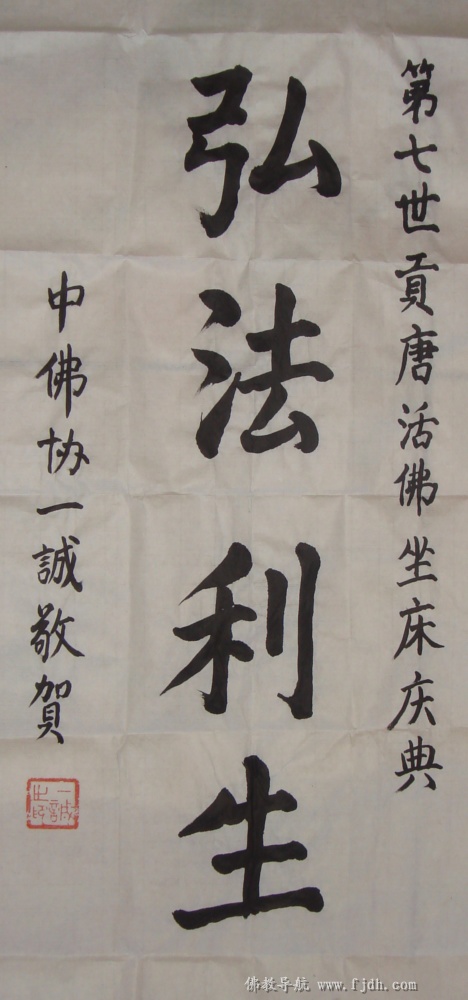 第七世贡唐活佛坐床庆典
弘法利生
中佛协一誠敬賀
一誠之印
佛教导航 www.fjdh.com